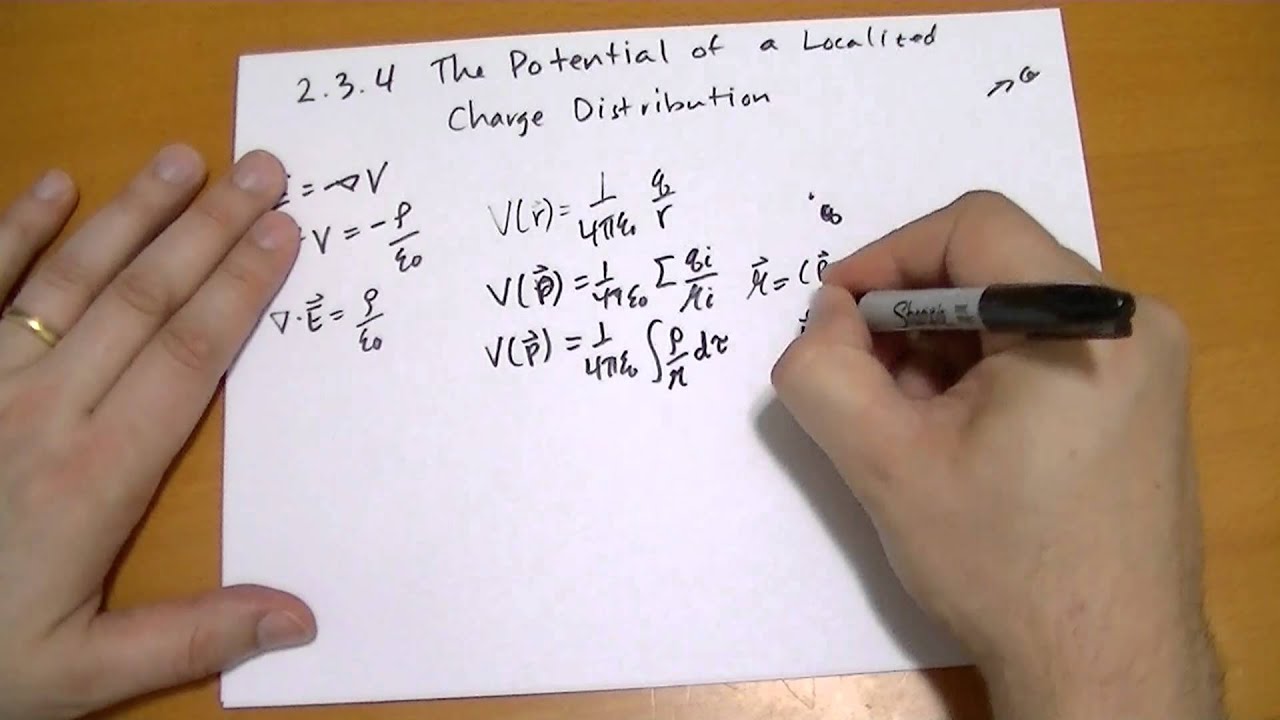 2.3.4 The Potential of a Localized
Charge Distribution
= -∇V
V = -ρ/ε₀
∇·E⃗ = ρ/ε₀
V(r⃗) = 1/4πε₀ q/r
V(p⃗) = 1/4πε₀ Σ qi/𝓇i 𝓇⃗ = (p⃗
V(p⃗) = 1/4πε₀ ∫ρ/𝓇 dτ
Sharpie